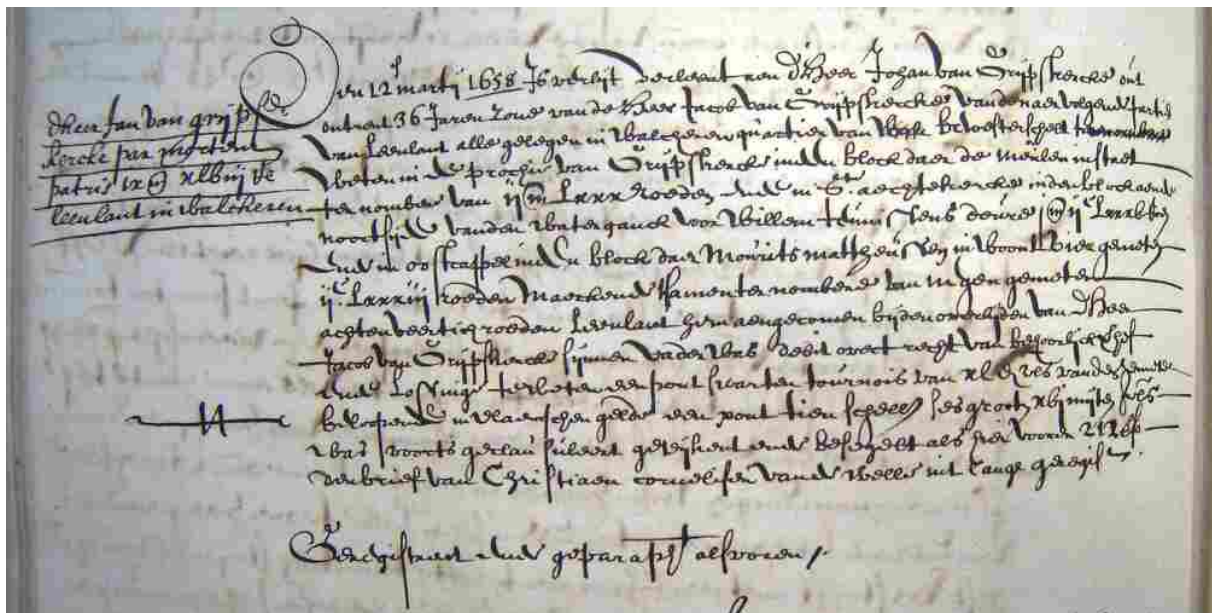 dheer Jan van grijps
kercke par mortem
patris ix m xlviij Re
leenlant in walcheren
Den 12en martij 1658 Is verlijt verleent aen d'Heer Johan van Grijpskercke out
ontrent 36 Jaren zone van de Heer Jacob van Grijpskercke vande naervolgende partien
van Leenlant alle gelegen in walcheren quartier van beoosterschelt te
weten in de prochie van Grijpskercke inden block daer de meulen in staet
ter nomber van ij m Lxxx roeden ende in St aechtekercke inden block aende
noortsijde vanden waterganck voor willem teunissens deure
Ende in oostcappel inden block daer Mourits mattheussen in woont vier gemeten
ij c Lxxxiij roeden maeckende tsamen ter nombere van gemeten
achtenveertich roeden Leenlant hem aengecomen bijden overlijden van d'Heer
Jacob van Grijpskercke sijnnen vader was debit over t recht van behoorlijck hof
ende Lossinge terleten een pont swarten tournois van xl vls vande gemete
beloopende in vlaemschen gelde een pont tien schell ses grooten xvj mijten vls
was voorts geclausuleert geteijkent ende besegelt als hier vooren 212
den brief van Christiaen cornelissen vande welle int lange geregistr
Geregistreert ende geparapht als vooren /